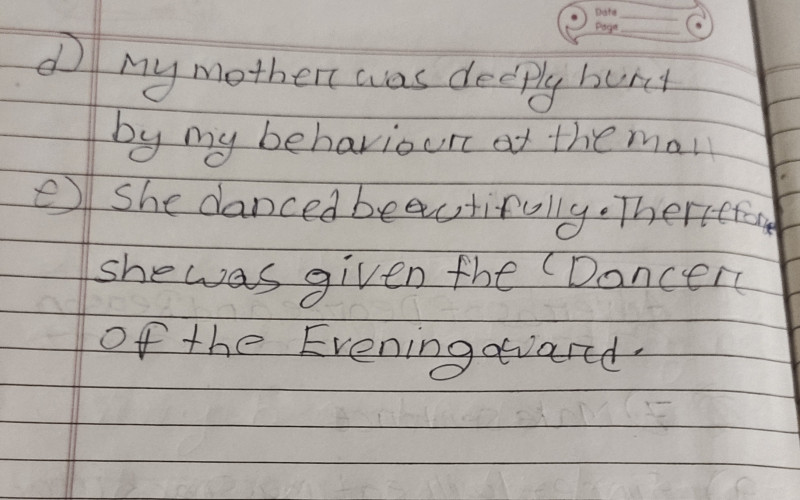 Date
Page
d) My mother was deeply hurt
by my behaviour at the mall
e) She danced beautifully. Therefore
she was given the 'Dancer
Of the Evening award.